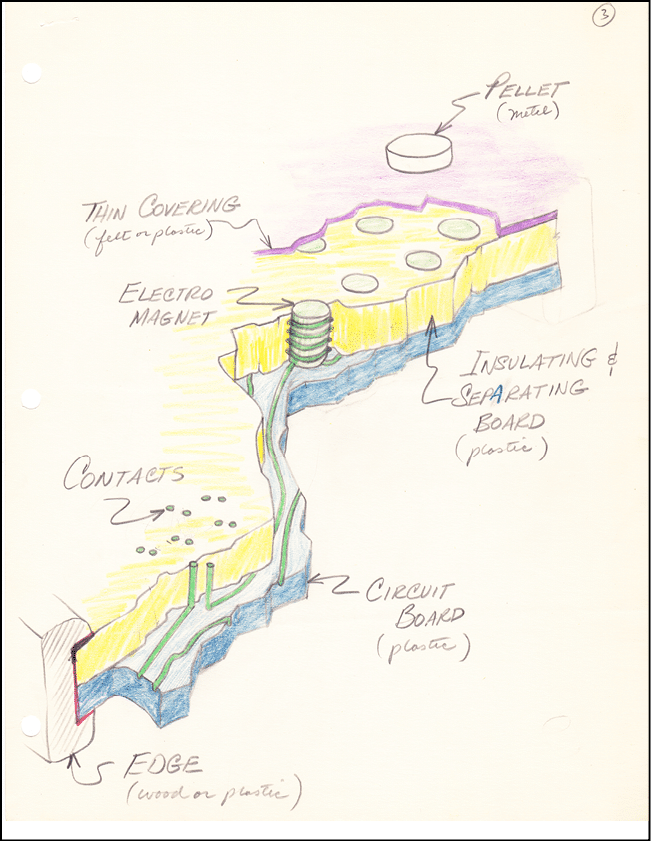 3
PELLET
(metal)
THIN COVERING
(felt or plastic)
ELECTRO
MAGNET
INSULATING &
SEPARATING
BOARD
(plastic)
CONTACTS
CIRCUIT
BOARD
(plastic)
EDGE
(wood or plastic)